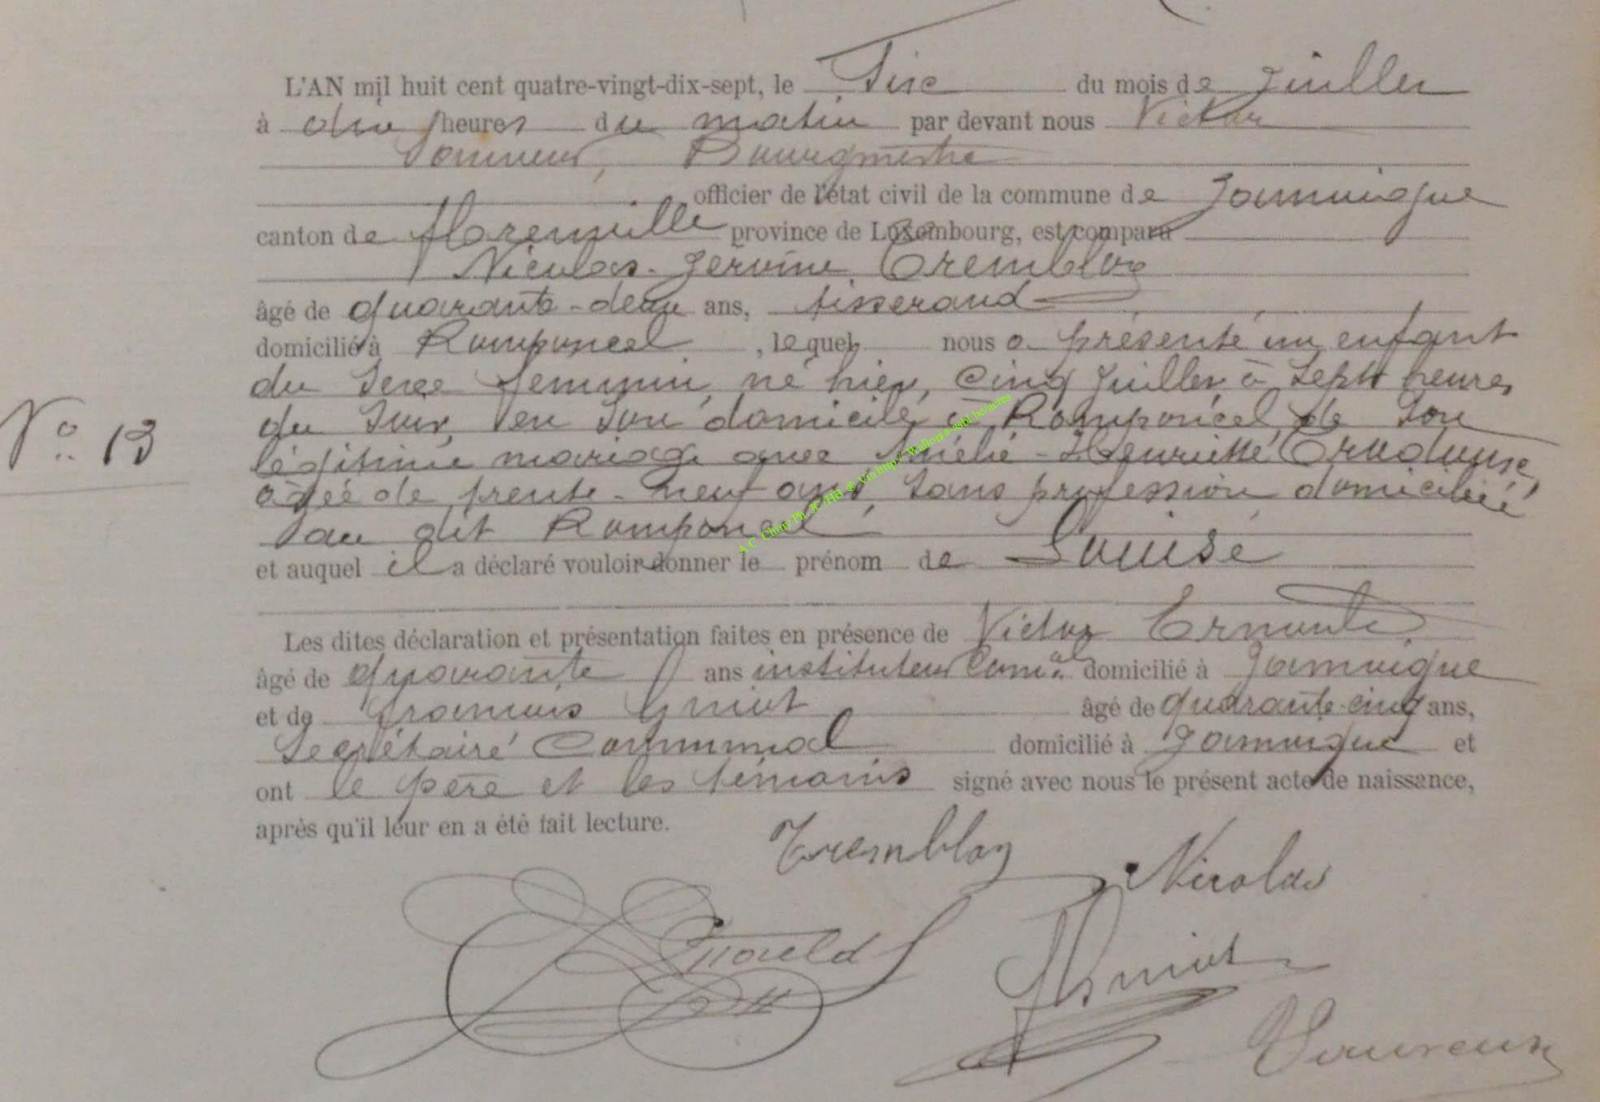 L'AN mil huit cent quatre-vingt-dix-sept, le Six du mois de Juillet
à heures du matin par devant nous Victor
Bourgmestre
officier de l'état civil de la commune de Jamoigne
canton de Florenville province de Luxembourg, est comparu
Nicolas-Jérôme Tremblay
âgé de quarante-deux ans, tisserand
domicilié à Romponcel, lequel nous a présenté un enfant
du sexe féminin, né hier, cinq Juillet à sept heures
du soir, en son domicile à Romponcel, de son
légitime mariage avec Amélie-Henriette
âgée de trente-neuf ans, sans profession, domiciliée
au dit Romponcel
et auquel il a déclaré vouloir donner le prénom de Louise
N° 13
Les dites déclaration et présentation faites en présence de Victor
âgé de quarante ans instituteur Comal domicilié à Jamoigne
et de François âgé de quarante-cinq ans,
Secrétaire Communal domicilié à Jamoigne et
ont le père et les témoins signé avec nous le présent acte de naissance,
après qu'il leur en a été fait lecture.
Tremblay Nicolas